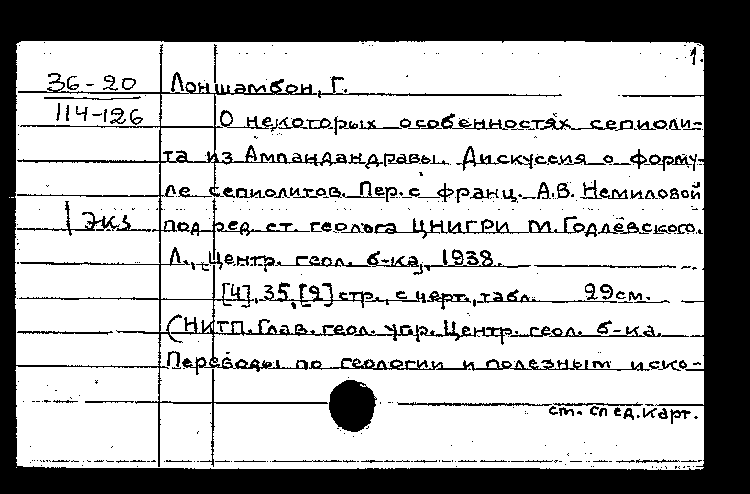 1.
36-20 Лоншамбон, Г.
114-126 О некоторых особенностях сепиоли-
та из Ампандандравы. Дискуссия о форму-
ле сепиолитов. Пер. с франц. А.В. Немиловой
1 экз под ред. ст. геолога ЦНИГРИ М. Годлевского.
Л., Центр. геол. б-ка, 1938.
[4], 35, [2] стр., с черт., табл. 29см.
(НКТП. Глав. геол. упр. Центр. геол. б-ка.
Переводы по геологии и полезным иско-
см. след. карт.